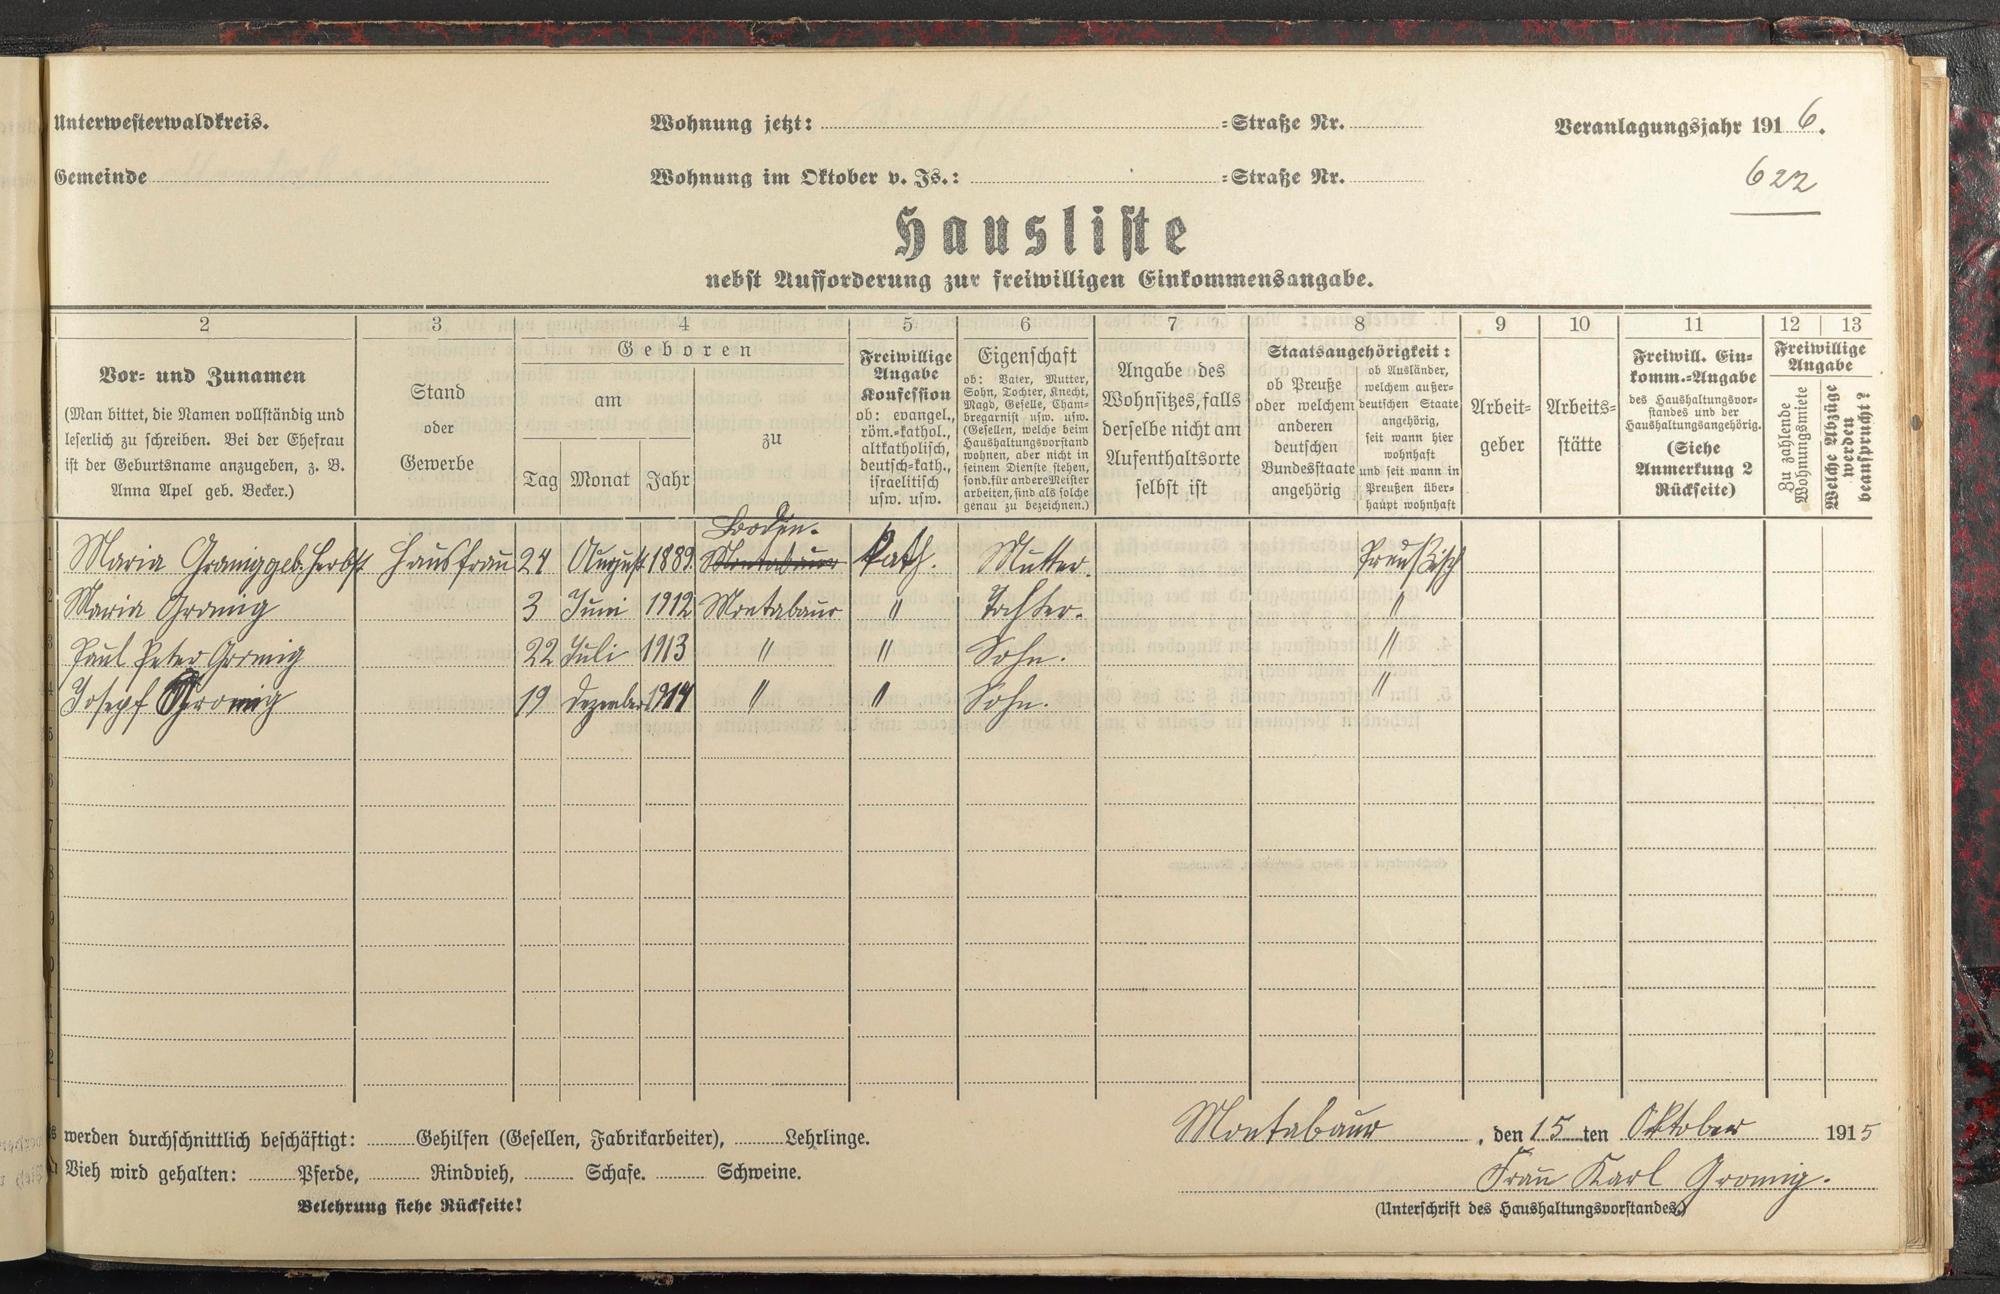 Unterwesterwaldkreis.
Wohnung jetzt: =Straße Nr.
Veranlagungsjahr 1916.
Gemeinde
Wohnung im Oktober v. Js.: =Straße Nr.
622
Hausliste
nebst Aufforderung zur freiwilligen Einkommensangabe.
2 3 4 5 6 7 8 9 10 11 12 13
Vor- und Zunamen
(Man bittet, die Namen vollständig und
leserlich zu schreiben. Bei der Ehefrau
ist der Geburtsname anzugeben, z. B.
Anna Apel geb. Becker.)
Stand
oder
Gewerbe
Geboren
am
Tag Monat Jahr
zu
Freiwillige
Angabe
Konfession
ob: evangel.,
röm.-kathol.,
altkatholisch,
deutsch-kath.,
israelitisch
usw. usw.
Eigenschaft
ob: Vater, Mutter,
Sohn, Tochter, Knecht,
Magd, Geselle, Cham-
bregarnist usw. usw.
(Gesellen, welche beim
Haushaltungsvorstand
wohnen, aber nicht in
seinem Dienste stehen,
sond. für andere Meister
arbeiten, sind als solche
genau zu bezeichnen.)
Angabe des
Wohnsitzes, falls
derselbe nicht am
Aufenthaltsorte
selbst ist
Staatsangehörigkeit:
ob Preuße
oder welchem
anderen
deutschen
Bundesstaate
angehörig
ob Ausländer,
welchem außer-
deutschen Staate
angehörig,
seit wann hier
wohnhaft
und seit wann in
Preußen über-
haupt wohnhaft
Arbeit-
geber
Arbeits-
stätte
Freiwill. Ein-
komm.-Angabe
des Haushaltungsvor-
standes und der
Haushaltungsangehörig.
(Siehe
Anmerkung 2
Rückseite)
Freiwillige
Angabe
Zu zahlende
Wohnungsmiete
Welche Abzüge
werden
beansprucht?
Boden.
1 Maria Gromig geb. Herbst Hausfrau 24 August 1889 Montabaur kath. Mutter. Preußisch
2 Maria Gromig 3 Juni 1912 Montabaur " Tochter. "
3 Paul Peter Gromig 22 Juli 1913 " " Sohn. "
4 Josepf Gromig 19 Dezember 1914 " " Sohn. "
5
6
7
8
9
0
1
2
werden durchschnittlich beschäftigt: Gehilfen (Gesellen, Fabrikarbeiter), Lehrlinge.
Montabaur, den 15 ten Oktober 1915
Vieh wird gehalten: Pferde, Rindvieh, Schafe. Schweine.
Frau Karl Gromig.
Belehrung siehe Rückseite!
(Unterschrift des Haushaltungsvorstandes.)